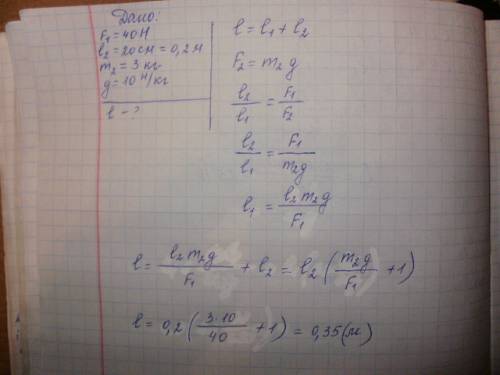 Дано:
F₁ = 40 Н
l₂ = 20 см = 0,2 м
m₂ = 3 кг
g = 10 Н/кг
l - ?
l = l₁ + l₂
F₂ = m₂ g
l₂/l₁ = F₁/F₂
l₂/l₁ = F₁/m₂g
l₁ = l₂ m₂ g/F₁
l = l₂ m₂ g/F₁ + l₂ = l₂ (m₂ g/F₁ + 1)
l = 0,2 (3·10/40 + 1) = 0,35 (м)